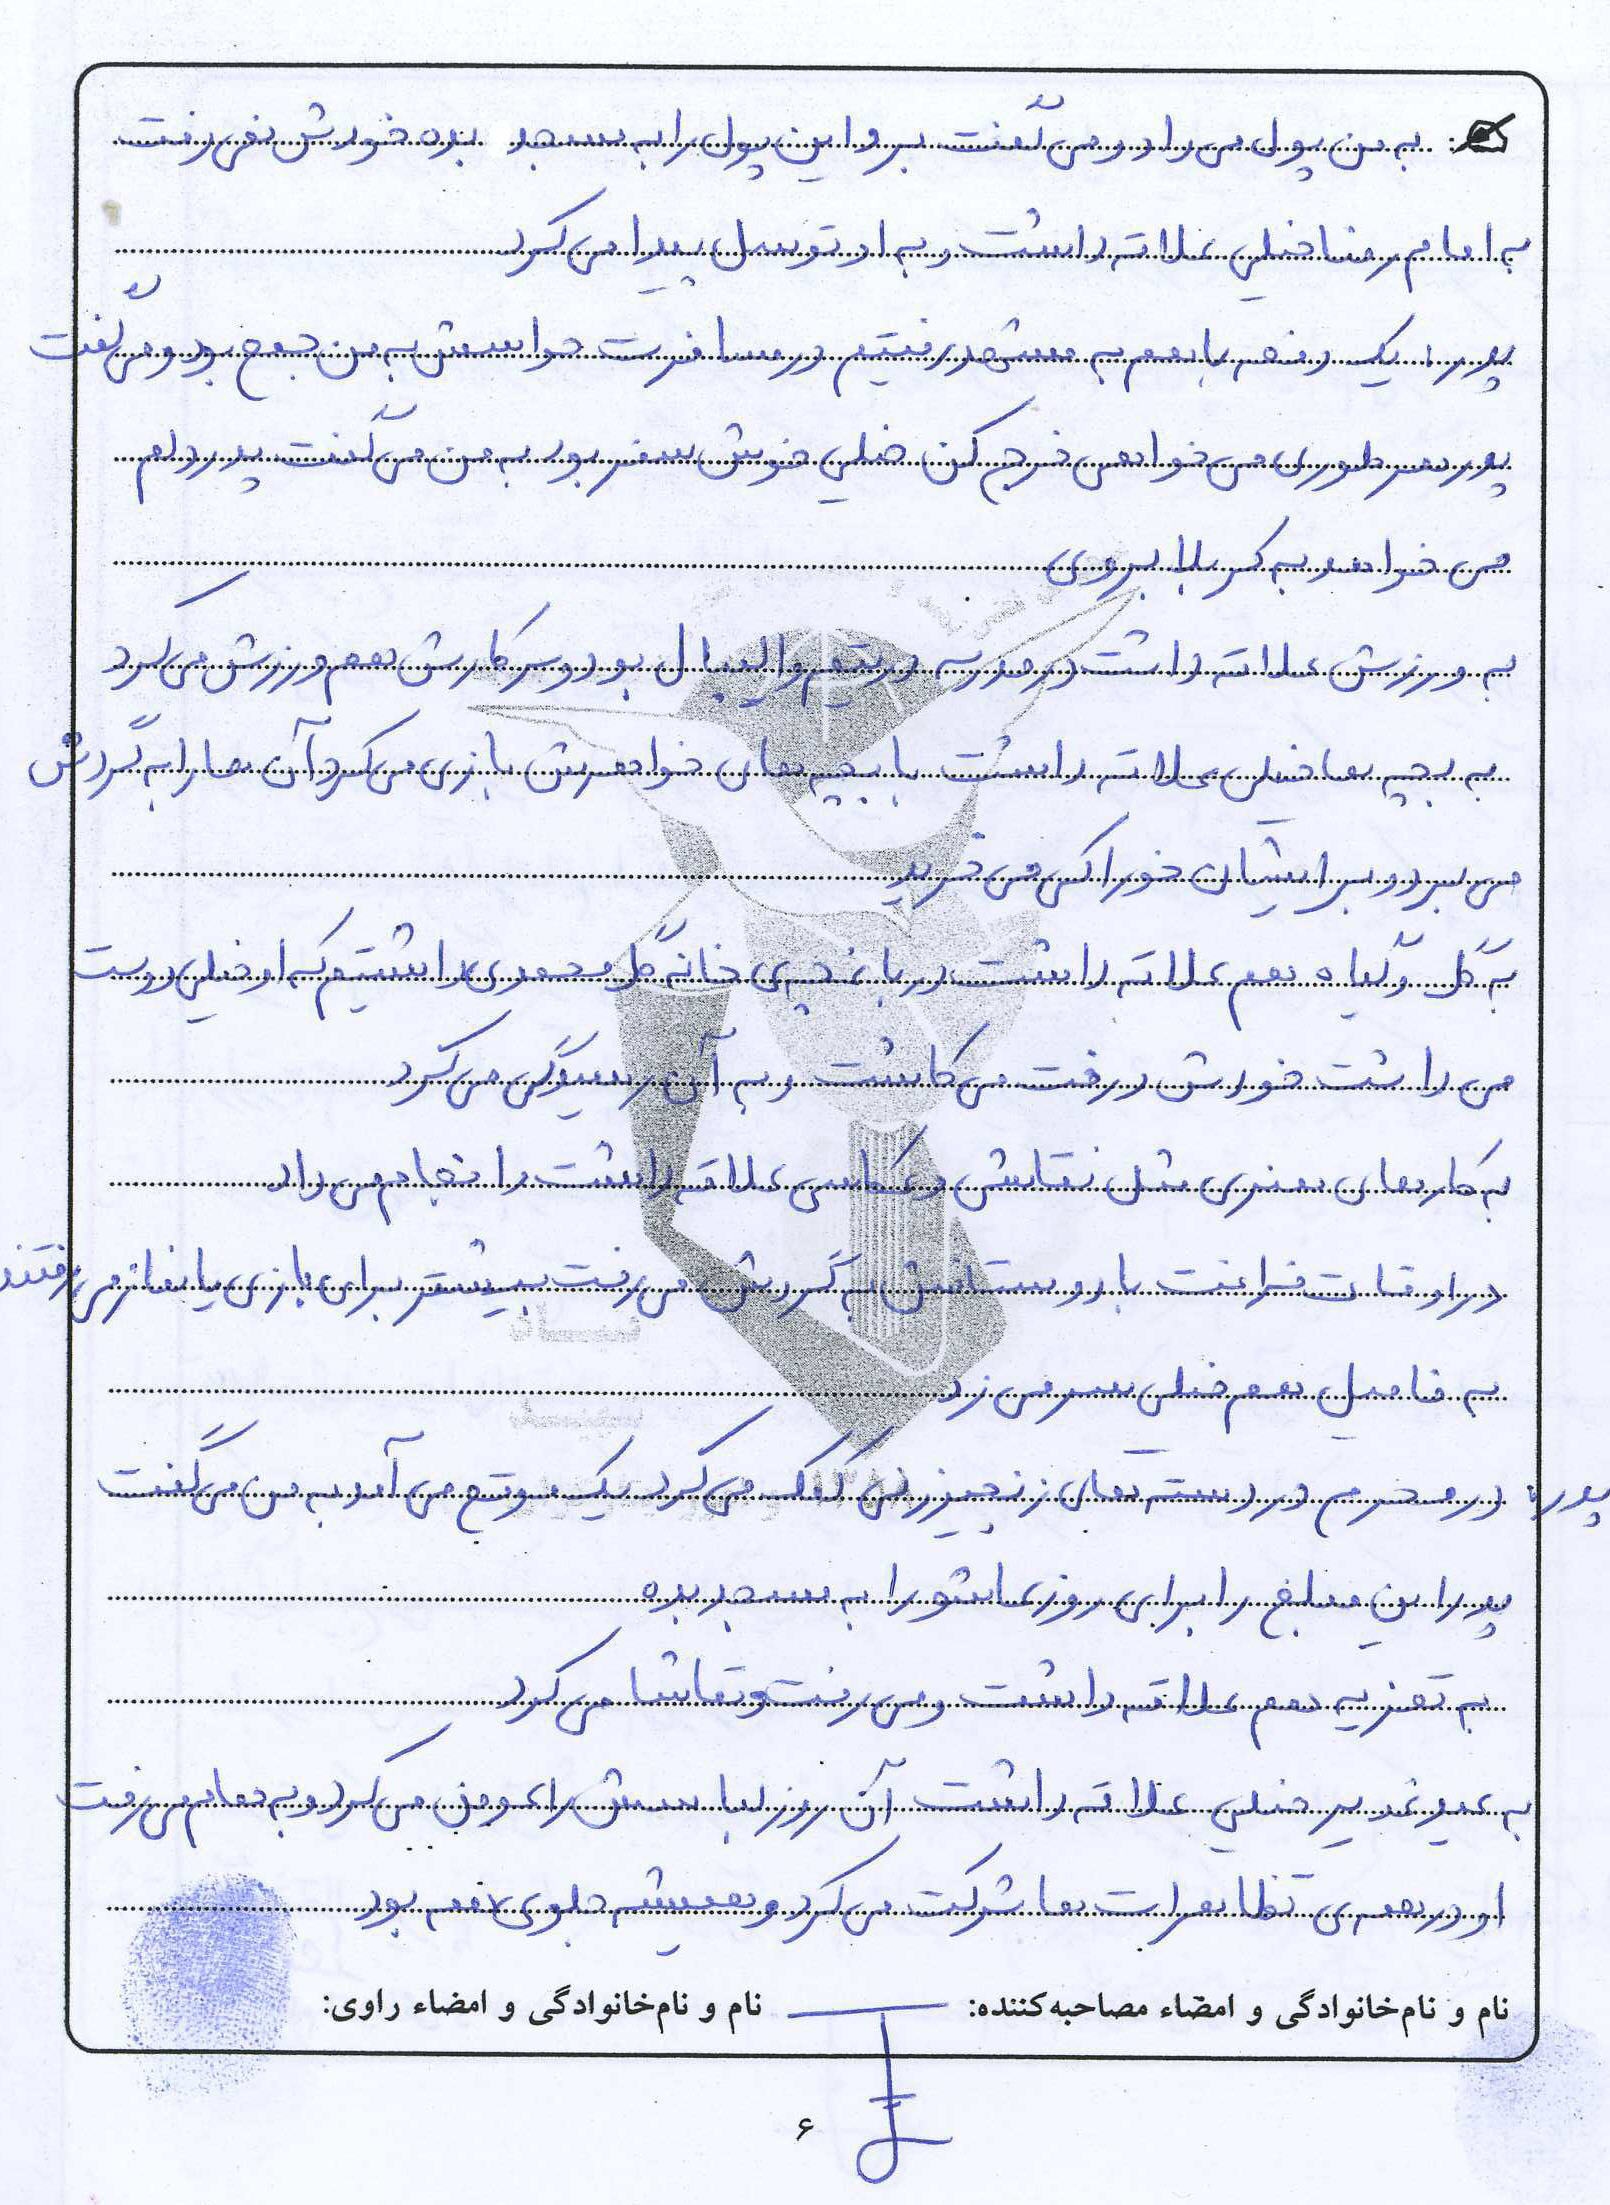 به من پول می داد و می گفت برو این پول را به مسجد بده خودش نمی رفت
به امام رضا خیلی علاقه داشت و به او توسل پیدا می کرد
پدر: یک دفعه با هم به مشهد رفتیم در مسافرت حواسش به من جمع بود و می گفت
پدر هر طوری می خواهی خرج کن خیلی خوش سفر بود به من می گفت پدر دلم
می خواهد به کربلا بروی
به ورزش علاقه داشت در مدرسه در تیم والیبال بود و سر کارش هم ورزش می کرد
به بچه ها خیلی علاقه داشت با بچه های خواهرش بازی می کرد آن ها را به گردش
می برد و برایشان خوراکی می خرید
به گل و گیاه هم علاقه داشت در باغچه ی خانه گل محمدی داشتیم که او خیلی دوست
می داشت خودش درخت می کاشت و به آن رسیدگی می کرد
به کارهای هنری مثل نقاشی و عکاسی علاقه داشت و انجام می داد
در اوقات فراغت با دوستانش به گردش می رفت بیشتر برای بازی یا نماز می رفتند
به فامیل هم خیلی سر می زد
پدر: در محرم در دسته های زنجیرزنی کمک می کرد یک موقع می آمد به من می گفت
پدر این مبلغ را برای روز عاشورا به مسجد بده
به تعزیه هم علاقه داشت و می رفت و تماشا می کرد
به عید غدیر خیلی علاقه داشت آن روز لباسش را عوض می کرد و به حمام می رفت
او در همه ی تظاهرات ها شرکت می کرد و همیشه جلوی همه بود
نام و نام‌خانوادگی و امضاء مصاحبه‌کننده: نام و نام‌خانوادگی و امضاء راوی:
۶